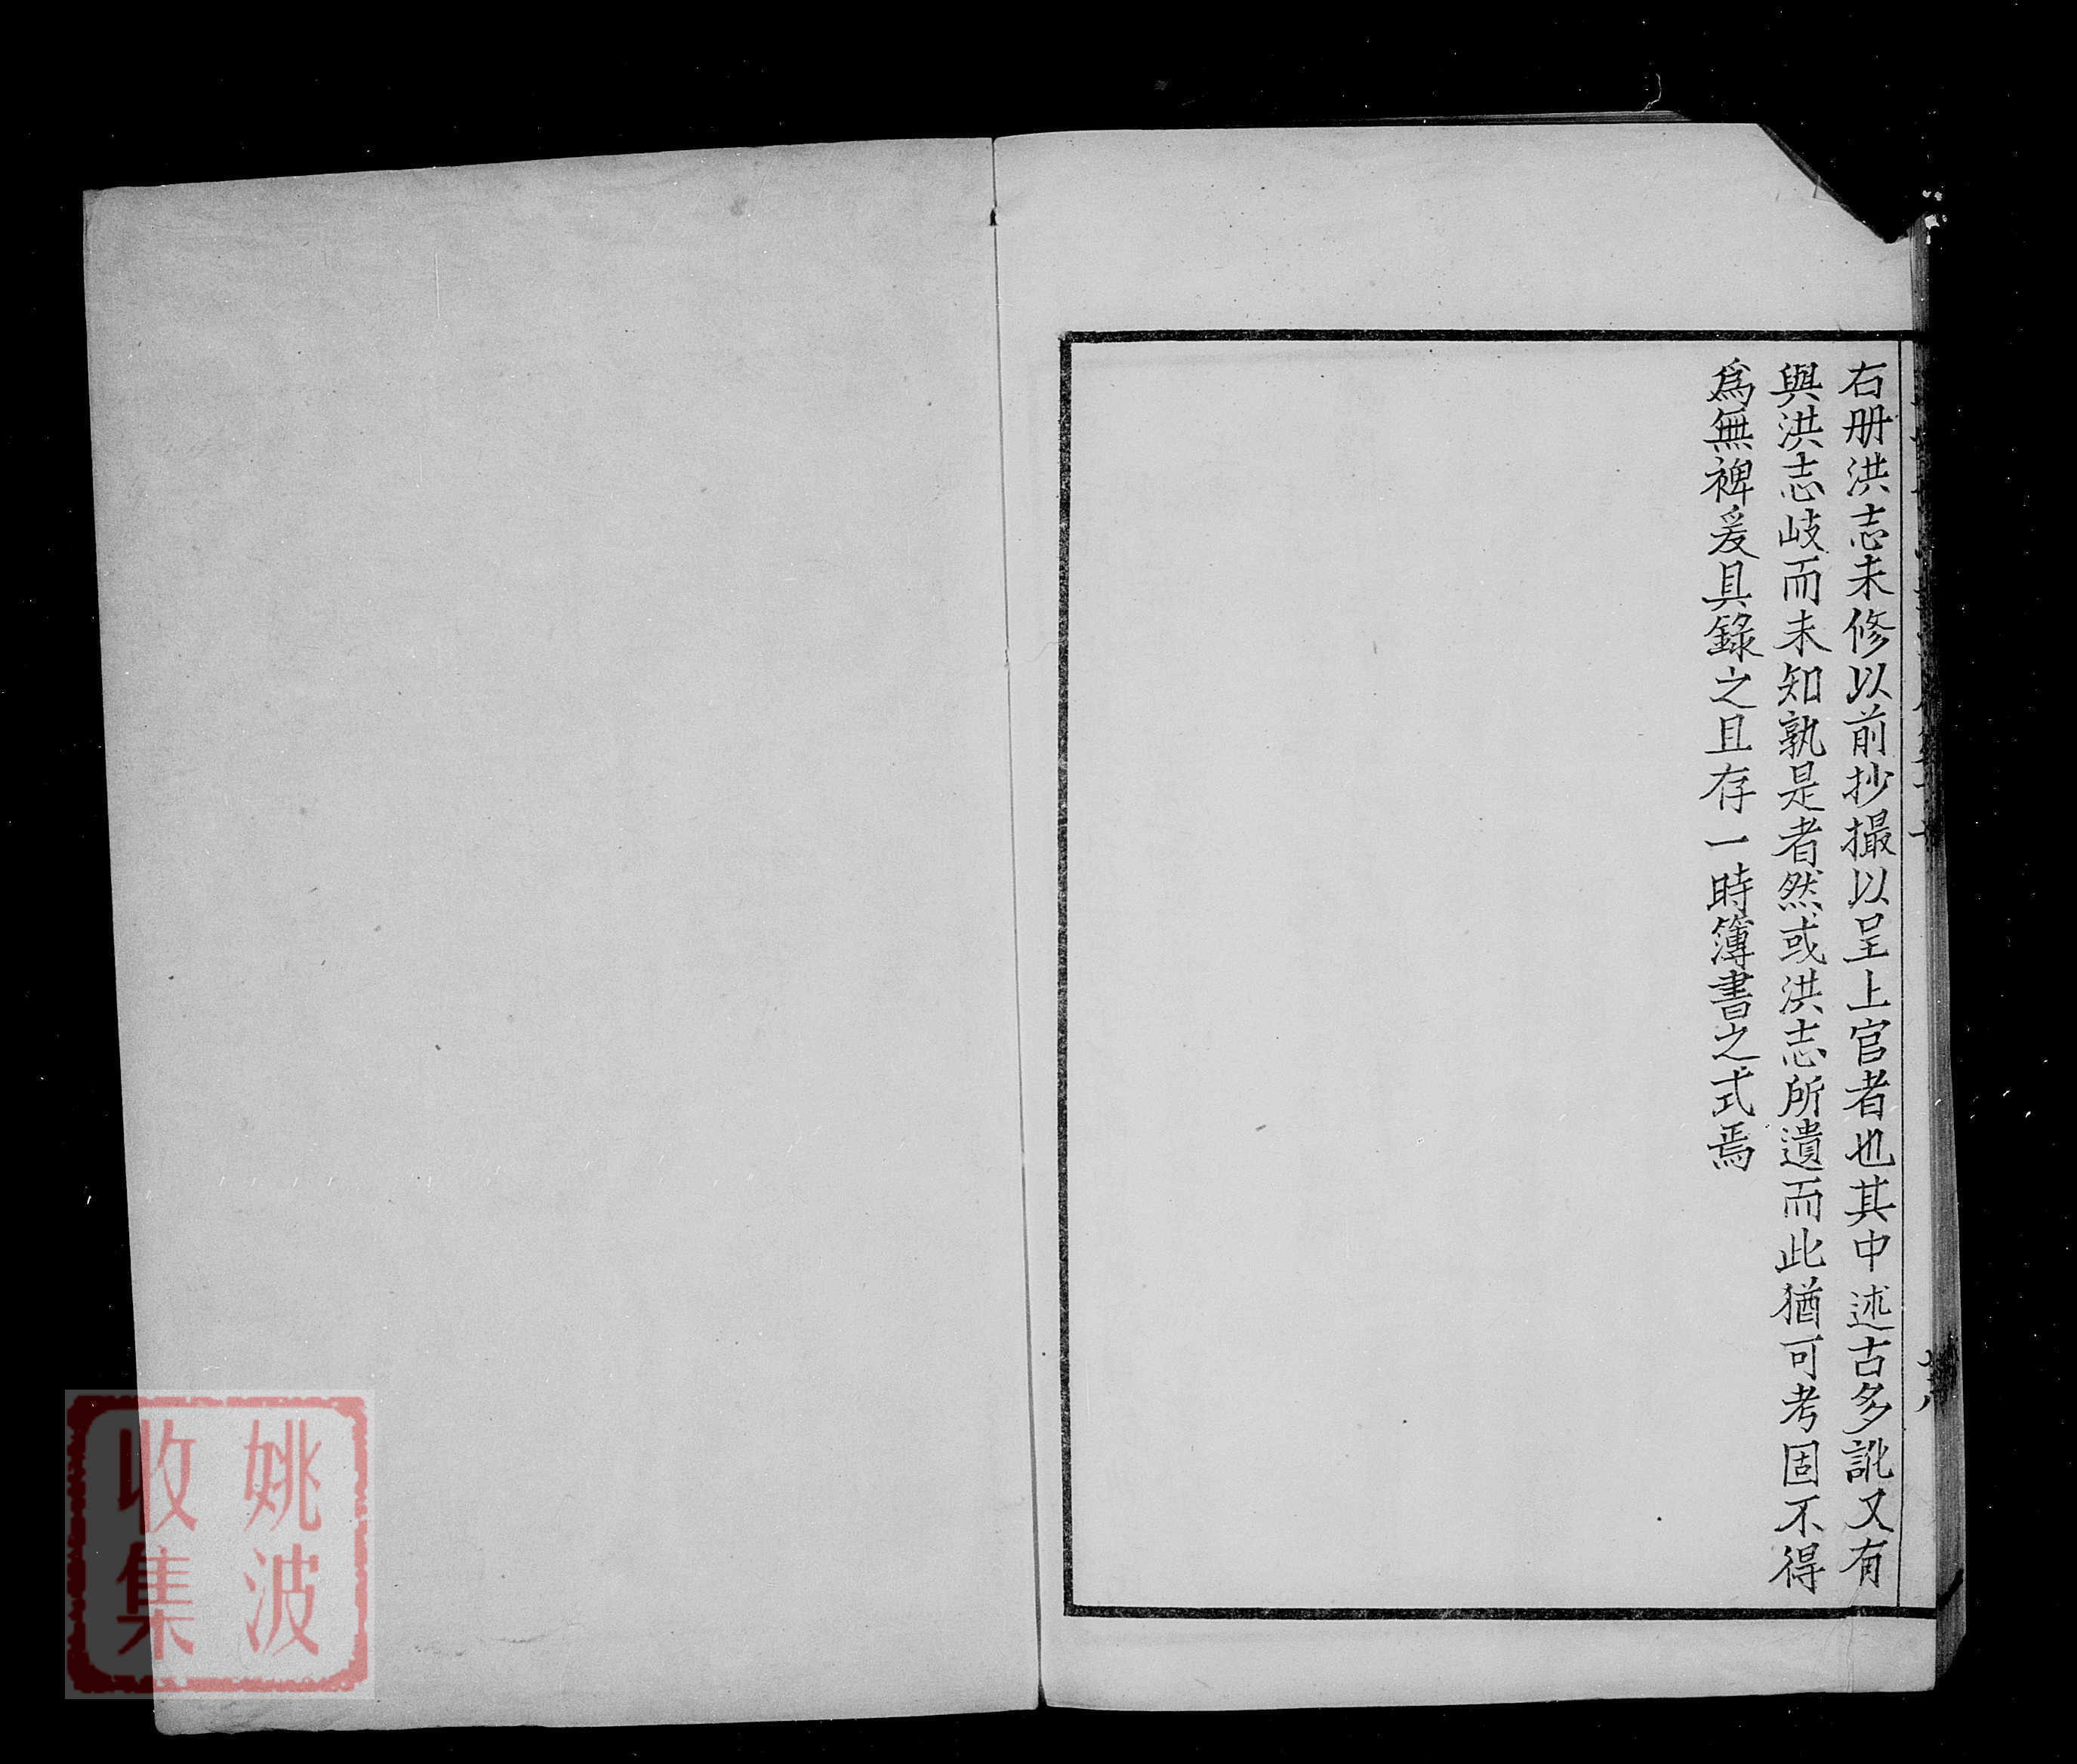 右册洪志未修以前抄撮以呈上官者也其中述古多訛又有
與洪志歧而未知孰是者然或洪志所遺而此猶可考固不得
爲無裨爰具錄之且存一時簿書之式焉
姚波
收集